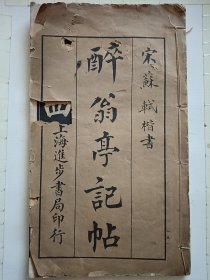 宋蘇軾楷書
醉翁亭記帖
上海進步書局印行